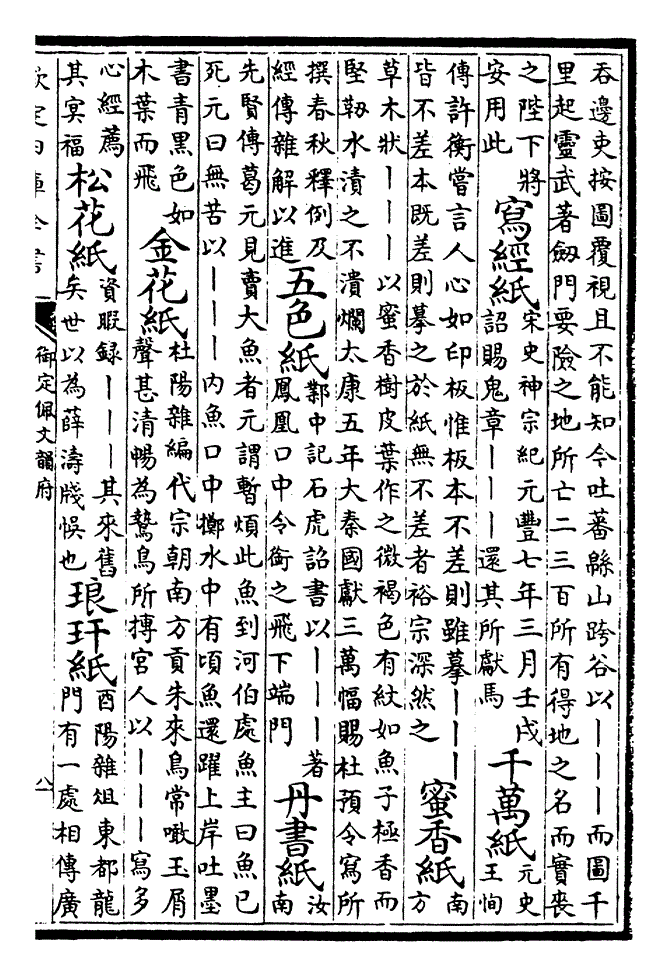 吞邊吏按圖覆視且不能知今吐蕃緜山跨谷以丨丨丨而圖千
里起靈武著劔門要險之地所亡二三百所有得地之名而實喪
之陛下將
安用此
寫經紙
宋史神宗紀元豐七年三月壬戌
詔賜鬼章丨丨丨還其所獻馬
千萬紙
元史
王恂
傳許衡嘗言人心如印板惟板本不差則雖摹丨丨丨
皆不差本既差則摹之於紙無不差者裕宗深然之
蜜香紙
南
方
草木狀丨丨丨以蜜香樹皮葉作之微褐色有紋如魚子極香而
堅韌水漬之不潰爛太康五年大秦國獻三萬幅賜杜預令寫所
撰春秋釋例及
經傳雜解以進
五色紙
鄴中記石虎詔書以丨丨丨著
鳳凰口中令銜之飛下端門
丹書紙
汝
南
先賢傳葛元見賣大魚者元謂暫煩此魚到河伯處魚主曰魚已
死元曰無苦以丨丨丨内魚口中擲水中有頃魚還躍上岸吐墨
書青黑色如
木葉而飛
金花紙
杜陽雜編代宗朝南方貢朱來鳥常噉玉屑
聲甚清暢為鷙鳥所摶宮人以丨丨丨寫多
心經薦
其冥福
松花紙
資暇録丨丨丨其來舊
矣世以為薛濤牋悞也
琅玕紙
酉陽雜俎東都龍
門有一處相傳廣
欽定四庫全書
御定佩文韻府
八